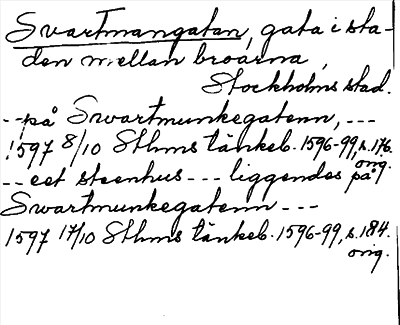 Svartmangatan, gata i sta-
den mellan broarna,
Stockholms stad.
--på Swartmunkegatenn, ---
1597 8/10 Sthms tänkeb. 1596-99, s. 176.
orig.
-- eet steenhus --- liggendes på
Swartmunkegatenn ---
1597 17/10 Sthms tänkeb. 1596-99, s. 184.
orig.